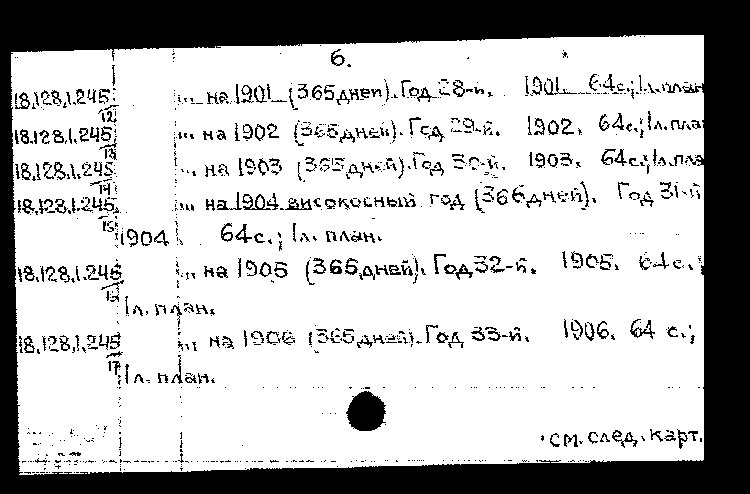 6.
18.128.1.245/12 ... на 1901 (365 дней). Год 28-й. 1901. 64 с.; 1 л. план
18.128.1.245/13 ... на 1902 (365 дней). Год 29-й. 1902. 64 с.; 1 л. пла
18.128.1.245/14 ... на 1903 (365 дней). Год 30-й. 1903. 64 с.; 1 л. пла
18.128.1.245/15 ... на 1904 високосный год (366 дней). Год 31-й
1904. 64 с.; 1 л. план.
18.128.1.245/16 ... на 1905 (365 дней). Год 32-й. 1905. 64 с.;
1 л. план.
18.128.1.245/17 ... на 1906 (365 дней). Год 33-й. 1906. 64 с.;
1 л. план.
см. след. карт.